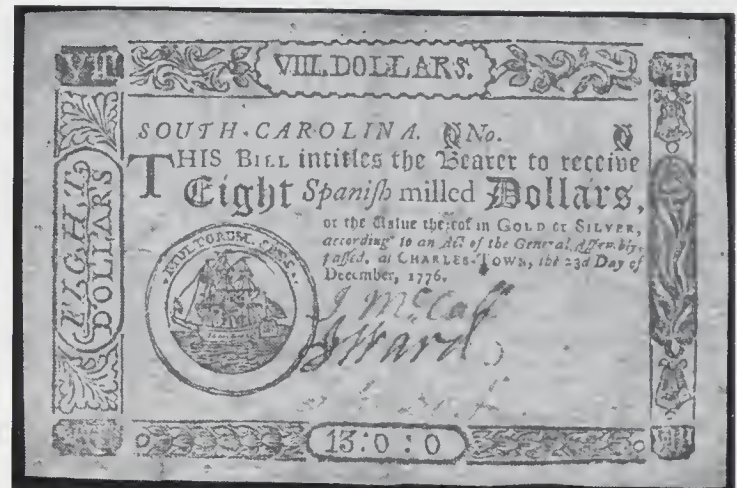 VIII
VIII. DOLLARS.
VIII
EIGHT
DOLLARS
SOUTH-CAROLINA. No.
THIS BILL intitles the Bearer to receive
Eight Spanish milled Dollars,
or the Value thereof in GOLD or SILVER,
according to an Act of the General Assembly,
passed, at CHARLES-TOWN, the 23d Day of
December, 1776.
MULTORUM SPES
J McCall
J Ward
VIII
13:0:0
VIII